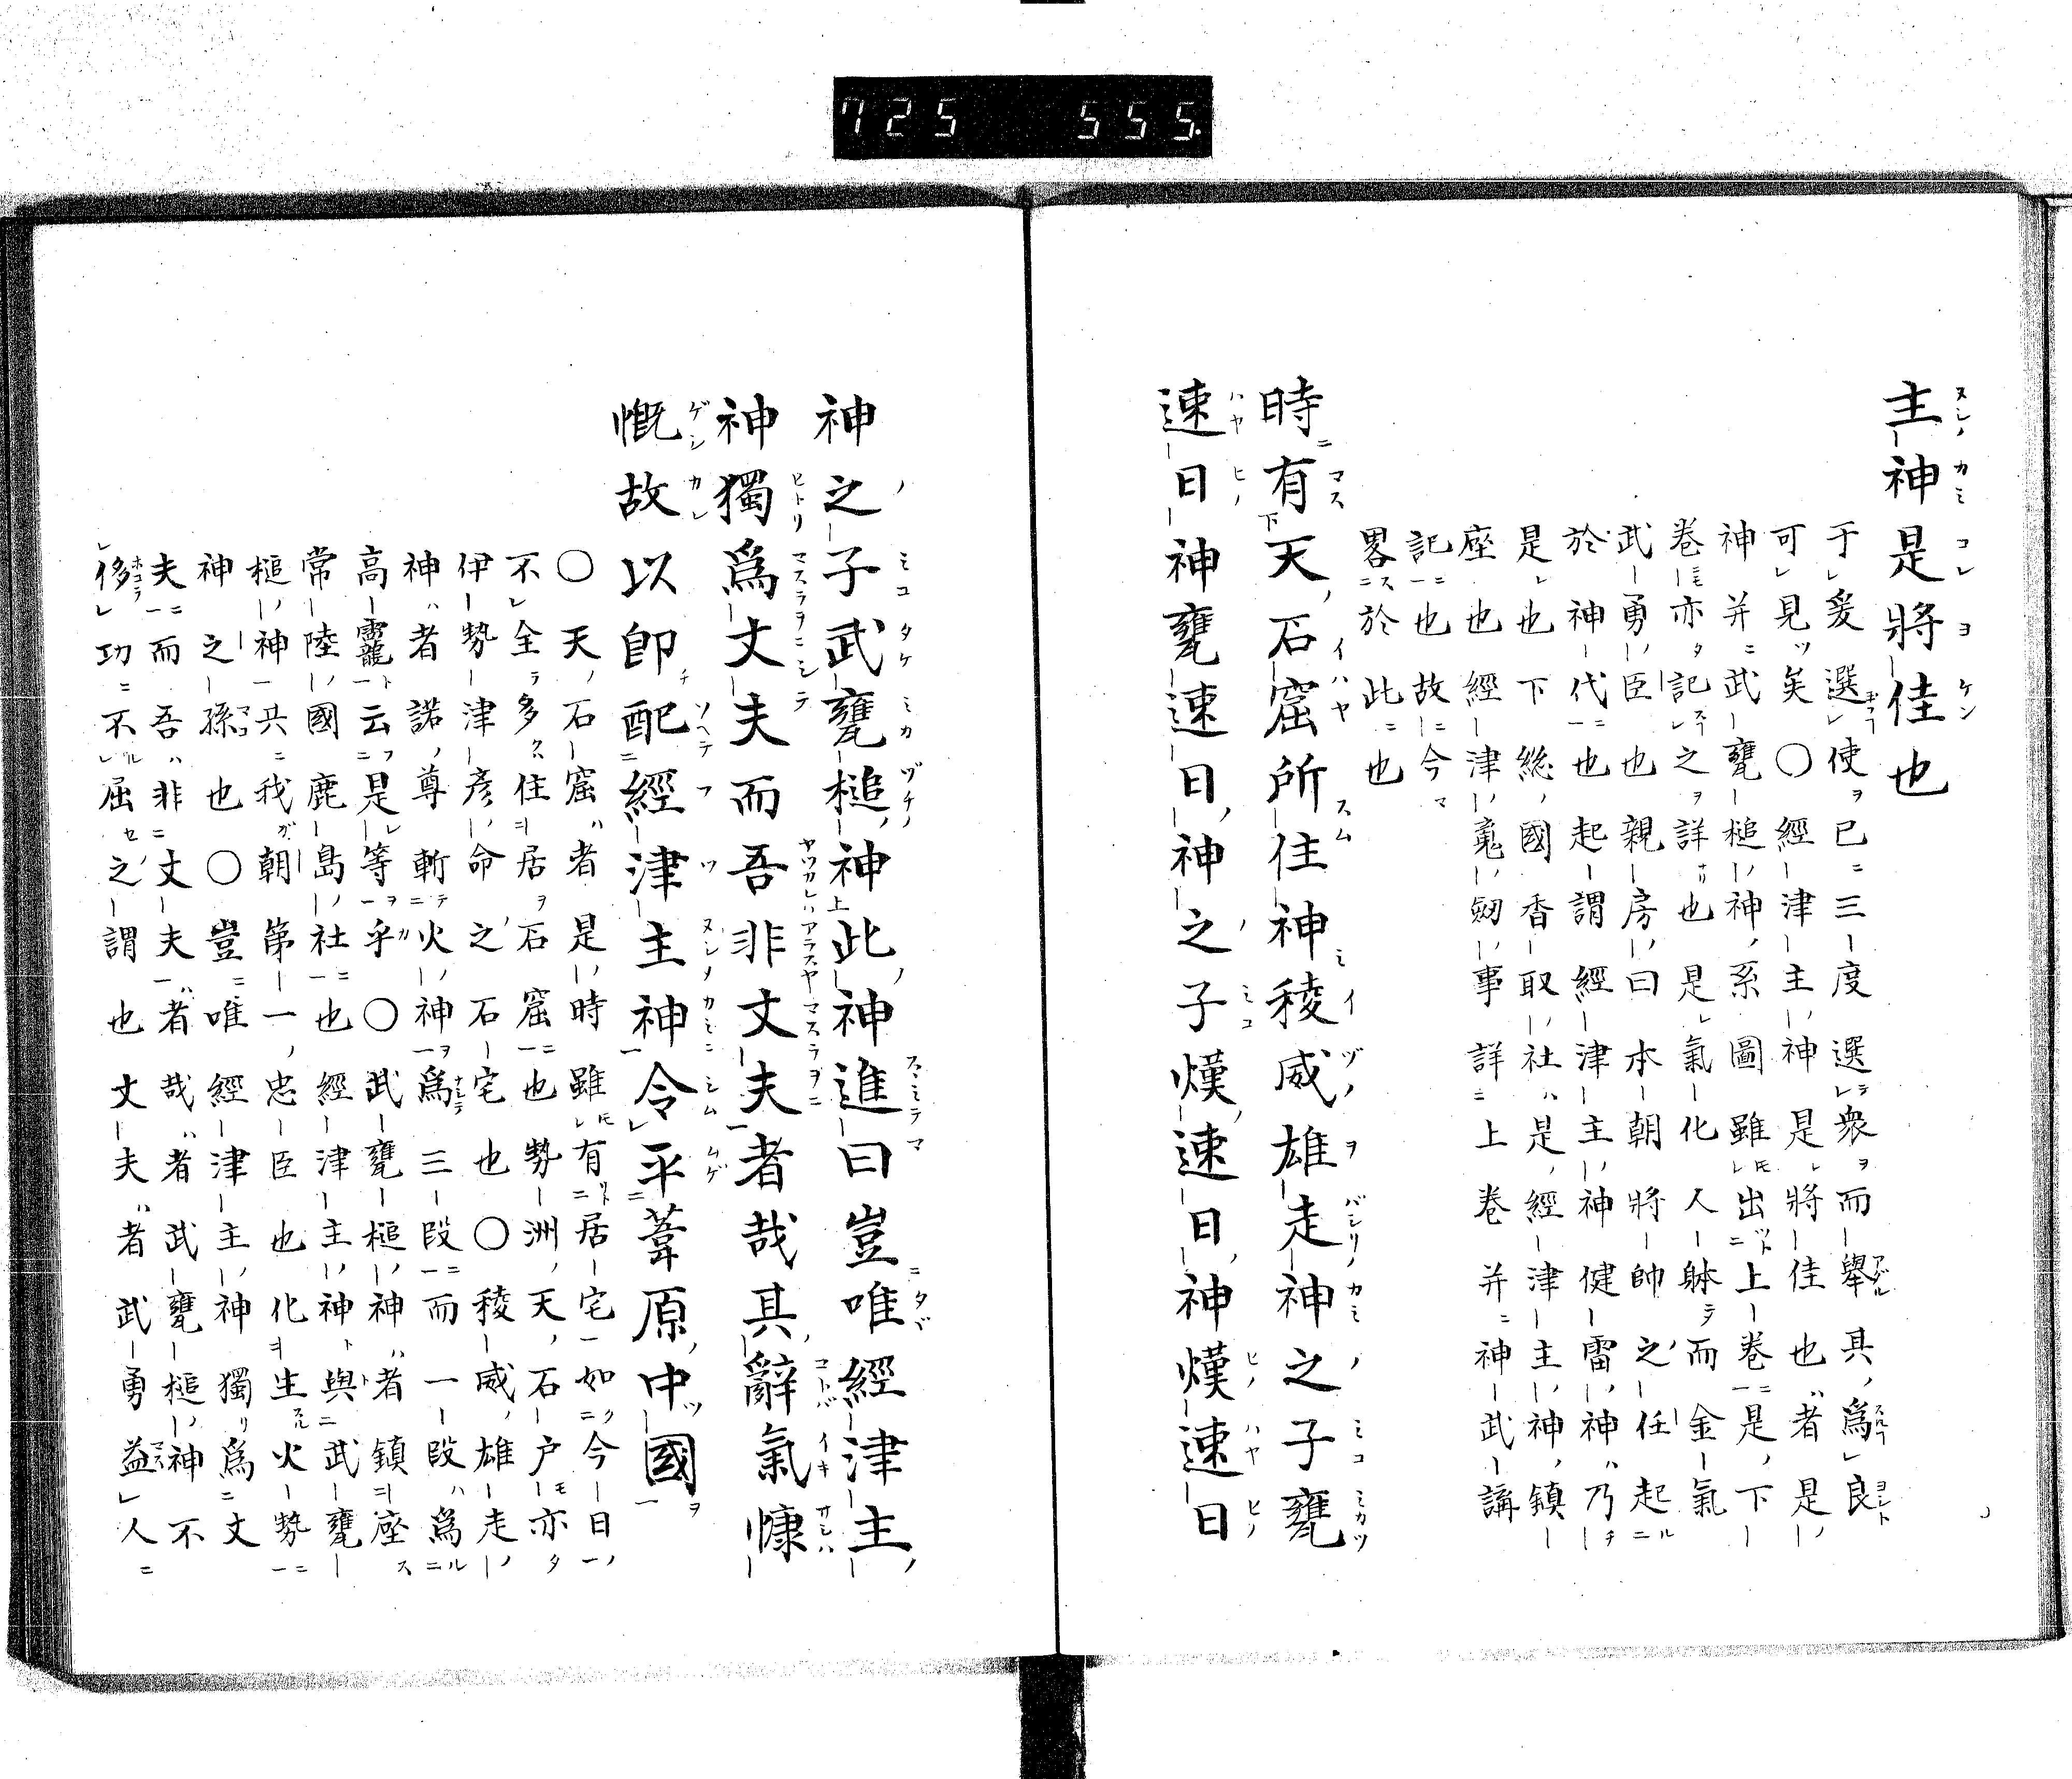 725 555.
主神是將佳也
于爰選使已三度選衆而擧其爲良
可見矣〇經津主神是將佳也者是
神并武甕槌神系圖雖出上卷是下
卷亦記之詳也是氣化人躰而金氣
武勇臣也親房曰本朝將帥之任起
於神代也起謂經津主神健雷神乃
是也下総國香取社是經津主神鎮
座也經津鬼劔事詳上卷并神武講
記也故今
畧於此也
時有天石窟所住神稜威雄走神之子甕
速日神甕速日神之子熯速日神熯速日
神之子武甕槌神此神進曰豈唯經津主
神獨爲丈夫而吾非丈夫者哉其辭氣慷
慨故以卽配經津主神令平葦原中國
〇天石窟者是時雖有居宅如今日
不全多住居石窟也勢洲天石户亦
伊勢津彥命之石宅也〇稜威雄走
神者諾尊斬火神爲三段而一段爲
高龗云是等乎〇武甕槌神者鎮座
常陸國鹿島社也經津主神與武甕
槌神共我朝第一忠臣也化生火勢
神之孫也〇豈唯經津主神獨爲丈
夫而吾非丈夫者哉者武甕槌神不
侈功不屈之謂也丈夫者武勇益人